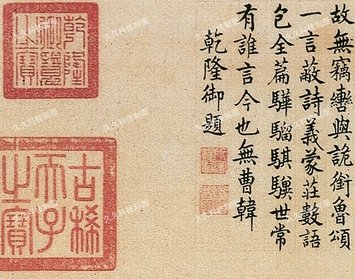 故無竊轡與詭銜魯頌
一言蔽詩義蒙莊數語
包全篇驊騮騏驥世常
有誰言今也無曹韓
乾隆御題
乾隆
御覽
之寶
古稀
天子
之寶